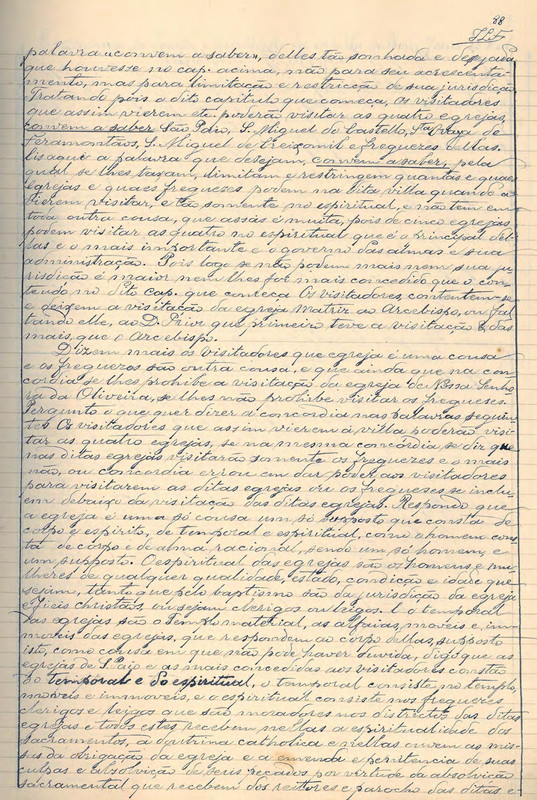 88
palavra «convem a saber», delles tão sonhada e desejada
que houvesse no cap. acima, não para seu acrescenta-
mento, mas para limitação e restricção de sua jurisdicção.
Tratando pois o dito capitulo que começa, Os visitadores
que assim vierem etc. poderão visitar as quatro egrejas,
convem a saber São Paio, S. Miguel do Castello, Sta Ovaya de
Feramontãos, S. Miguel de Creixomil e freguezes dellas.
Eis aqui a palavra que desejam, convem a saber, pela
qual se lhes taxam, limitam e restringem quantas e quaes
egrejas e quaes freguezes podem na dita villa quando a
vierem visitar, e tão somente no espiritual, e não tem em
toda outra cousa, que assás é muita, pois de cinco egrejas
podem visitar as quatro no espiritual que é o principal del-
las e o mais importante e o governo das almas e sua
administração. Pois logo se não podem mais nem sua ju-
risdição é maior nem lhes foi mais concedido que o con-
teudo no dito cap. que começa Os visitadores, contentem-se
e deixem a visitação da egreja Matriz ao Arcebispo, ou fal-
tando elle, ao D. Prior que primeiro teve a visitação das
mais, que o Arcebispo.
Dizem mais os visitadores que egreja é uma cousa
e os freguezes são outra cousa, e que ainda que na con-
cordia se lhes prohibe a visitação da egreja de Nossa Senho-
ra da Oliveira, se lhes não prohibe visitar os freguezes.
Pergunto o que quer dizer a concordia nas palavras seguin-
tes Os visitadores que assim vierem á villa poderão visi-
tar as quatro egrejas, se na mesma concórdia se diz que
nas ditas egrejas visitarão somente os freguezes e o mais
não, ou concordia errou em dar poder aos visitadores
para visitarem as ditas egrejas ou os freguezes se inclu-
em debaixo da visitação das ditas egrejas. Respondo que
a egreja é uma só cousa um só supposto que consta de
corpo e espirito, de temporal e espiritual, como o homem cons-
ta de corpo e de alma racional, sendo um só homem e
um supposto. O espiritual das egrejas são os homens e mu-
lheres de qualquer qualidade, estado, condição e idade que
sejam, tanto que pelo baptismo são da jurisdição da egreja
e fieis christãos, ou sejam clerigos ou leigos. E o temporal
das egrejas são o templo material, as alfaias, moveis e im-
moveis das egrejas, que respondem ao corpo dellas, supposto
isto, como cousa em que não pode haver duvida, digo que as
egrejas de S. Paio e as mais concedidas aos visitadores consta
do temporal e do espiritual, o temporal consiste no templo,
moveis e immoveis, e o espiritual consiste nos freguezes
clerigos e leigos que são moradores nos districtos das ditas
egrejas e todos estes recebem nellas a espiritualidade dos
sacramentos, a doutrina catholica e nellas ouvem as mis-
sas da obrigação da egreja e a emenda e penitencia de suas
culpas e absolvição de seus peccados por virtude da absolvição
sacramental que recebem dos reitores e parocho das ditas e-